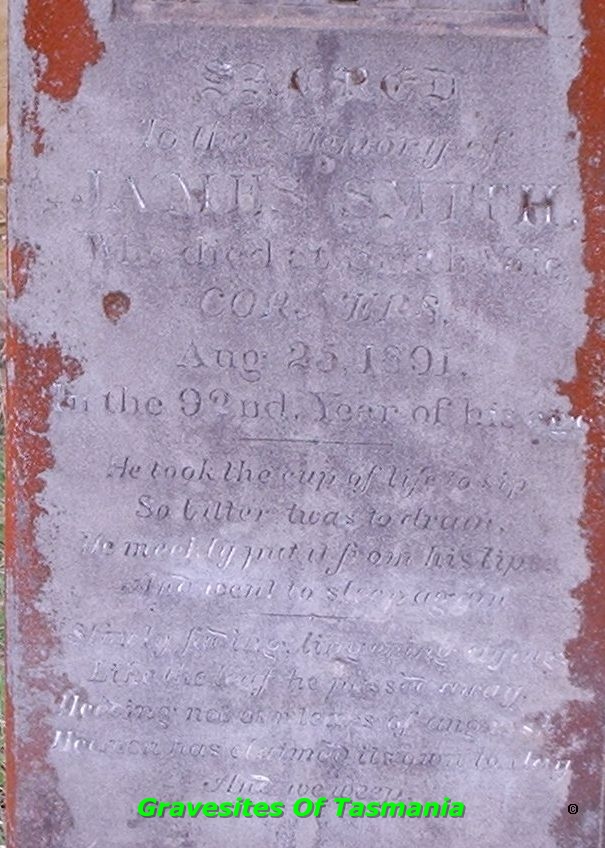 SACRED
To the Memory of
JAMES SMITH.
Who died at Vale
CORNERS.
Aug 25, 1891.
In the 92nd. Year of his age
He took the cup of life to sip
So bitter twas to drain,
He meekly put it from his lips
And went to sleep again
Slowly fading, lingering dying
Like the leaf he passed away.
Heeding not our tears of anguish
Heaven has claimed its own to day
And we weep
Gravesites Of Tasmania ©